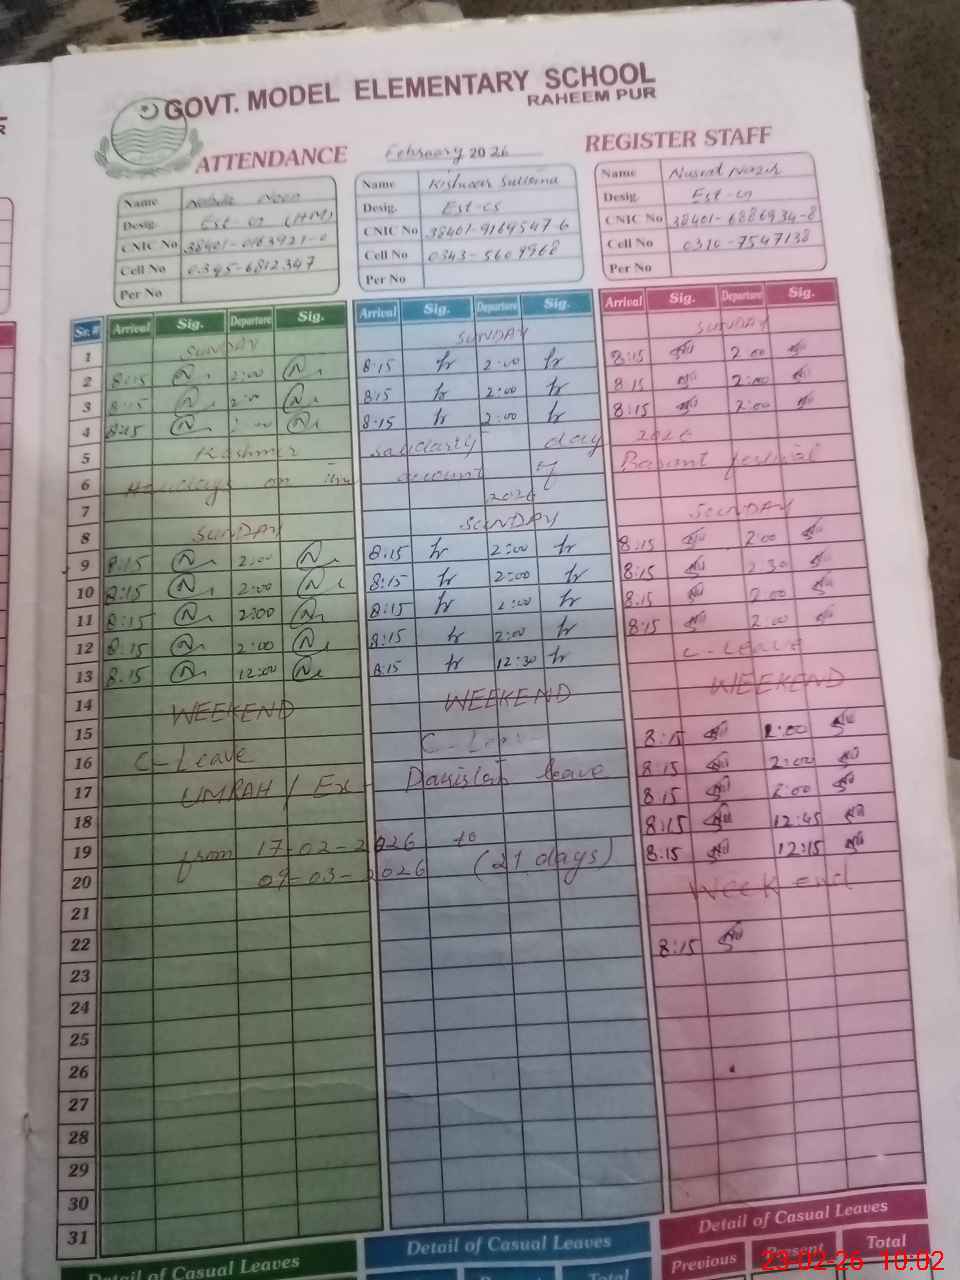 GOVT. MODEL ELEMENTARY SCHOOL
RAHEEM PUR
ATTENDANCE February 2026 REGISTER STAFF
Name Noon
Desig. Est-
CNIC No 38401-0163921-0
Cell No 0345-6812347
Per No
Name Kishwar Sultana
Desig. Est-cs
CNIC No 38401-9169547-6
Cell No 0343-5609968
Per No
Name Nusrat Nazir
Desig. Est-
CNIC No 38401-6886934-8
Cell No 0310-7547138
Per No
Sr. # Arrival Sig. Departure Sig. Arrival Sig. Departure Sig. Arrival Sig. Departure Sig.
1 SUNDAY SUNDAY SUNDAY
2 8:15 2:00 8:15 2:00 8:15 2:00
3 8:15 2:00 8:15 2:00 8:15 2:00
4 8:15 2:00 8:15 2:00 8:15 2:00
5 Kashmir solidarity day 2026
6 Holidays on the account of Basant festival
7 2026
8 SUNDAY SUNDAY SUNDAY
9 8:15 2:00 8:15 2:00 8:15 2:00
10 8:15 2:00 8:15 2:00 8:15 2:30
11 8:15 2:00 8:15 2:00 8:15 2:00
12 8:15 2:00 8:15 2:00 8:15 2:00
13 8:15 12:00 8:15 12:30 C-Leave
14
15 WEEKEND WEEKEND WEEKEND
16 C-Leave C-Leave 8:15 2:00
17 UMRAH / Ex- Pakistan leave 8:15 2:00
18 8:15 2:00
19 from 17-02-2026 to 8:15 12:45
20 09-03-2026 (21 days) 8:15 12:15
21 Weekend
22
23 8:15
24
25
26
27
28
29
30
31
Detail of Casual Leaves Detail of Casual Leaves Detail of Casual Leaves
Present Total Previous Present Total
23-02-26 10:02